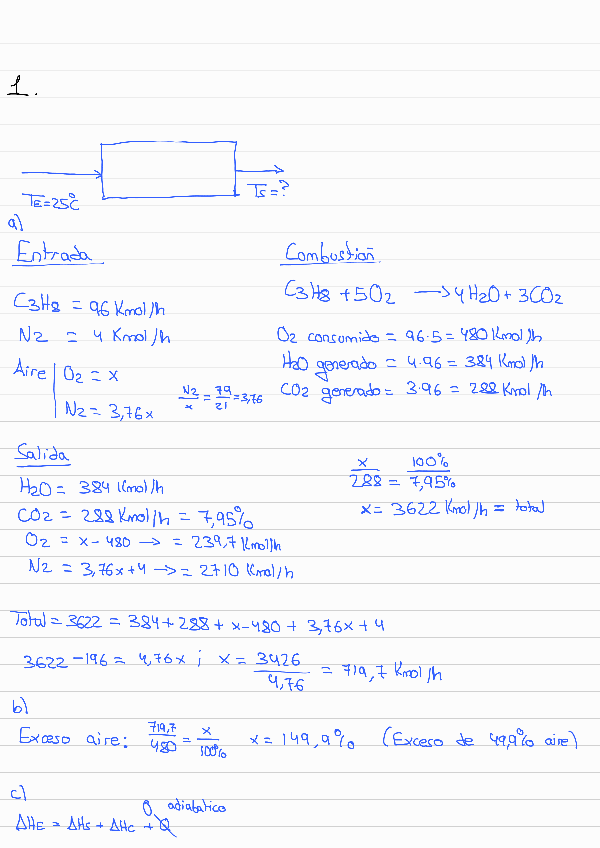 1.
TE=25°C
Ts=?
a)
Entrada
C3H8 = 96 Kmol/h
N2 = 4 Kmol/h
Aire | O2 = x
N2 = 3,76x
N2/x = 79/21 = 3,76
Combustion
C3H8 + 5O2 → 4H2O + 3CO2
O2 consumido = 96·5 = 480 Kmol/h
H2O generado = 4·96 = 384 Kmol/h
CO2 generado = 3·96 = 288 Kmol/h
Salida
H2O = 384 Kmol/h
CO2 = 288 Kmol/h = 7,95%
O2 = x-480 → = 239,7 Kmol/h
N2 = 3,76x+4 → = 2710 Kmol/h
x/288 = 100%/7,95%
x = 3622 Kmol/h = total
Total = 3622 = 384 + 288 + x-480 + 3,76x + 4
3622 - 196 = 4,76x ; x = 3426/4,76 = 719,7 Kmol/h
b)
Exceso aire: 719,7/480 = x/100% x = 149,9% (Exceso de 49,9% aire)
c)
0 adiabatico
ΔHE = ΔHs + ΔHc + Q